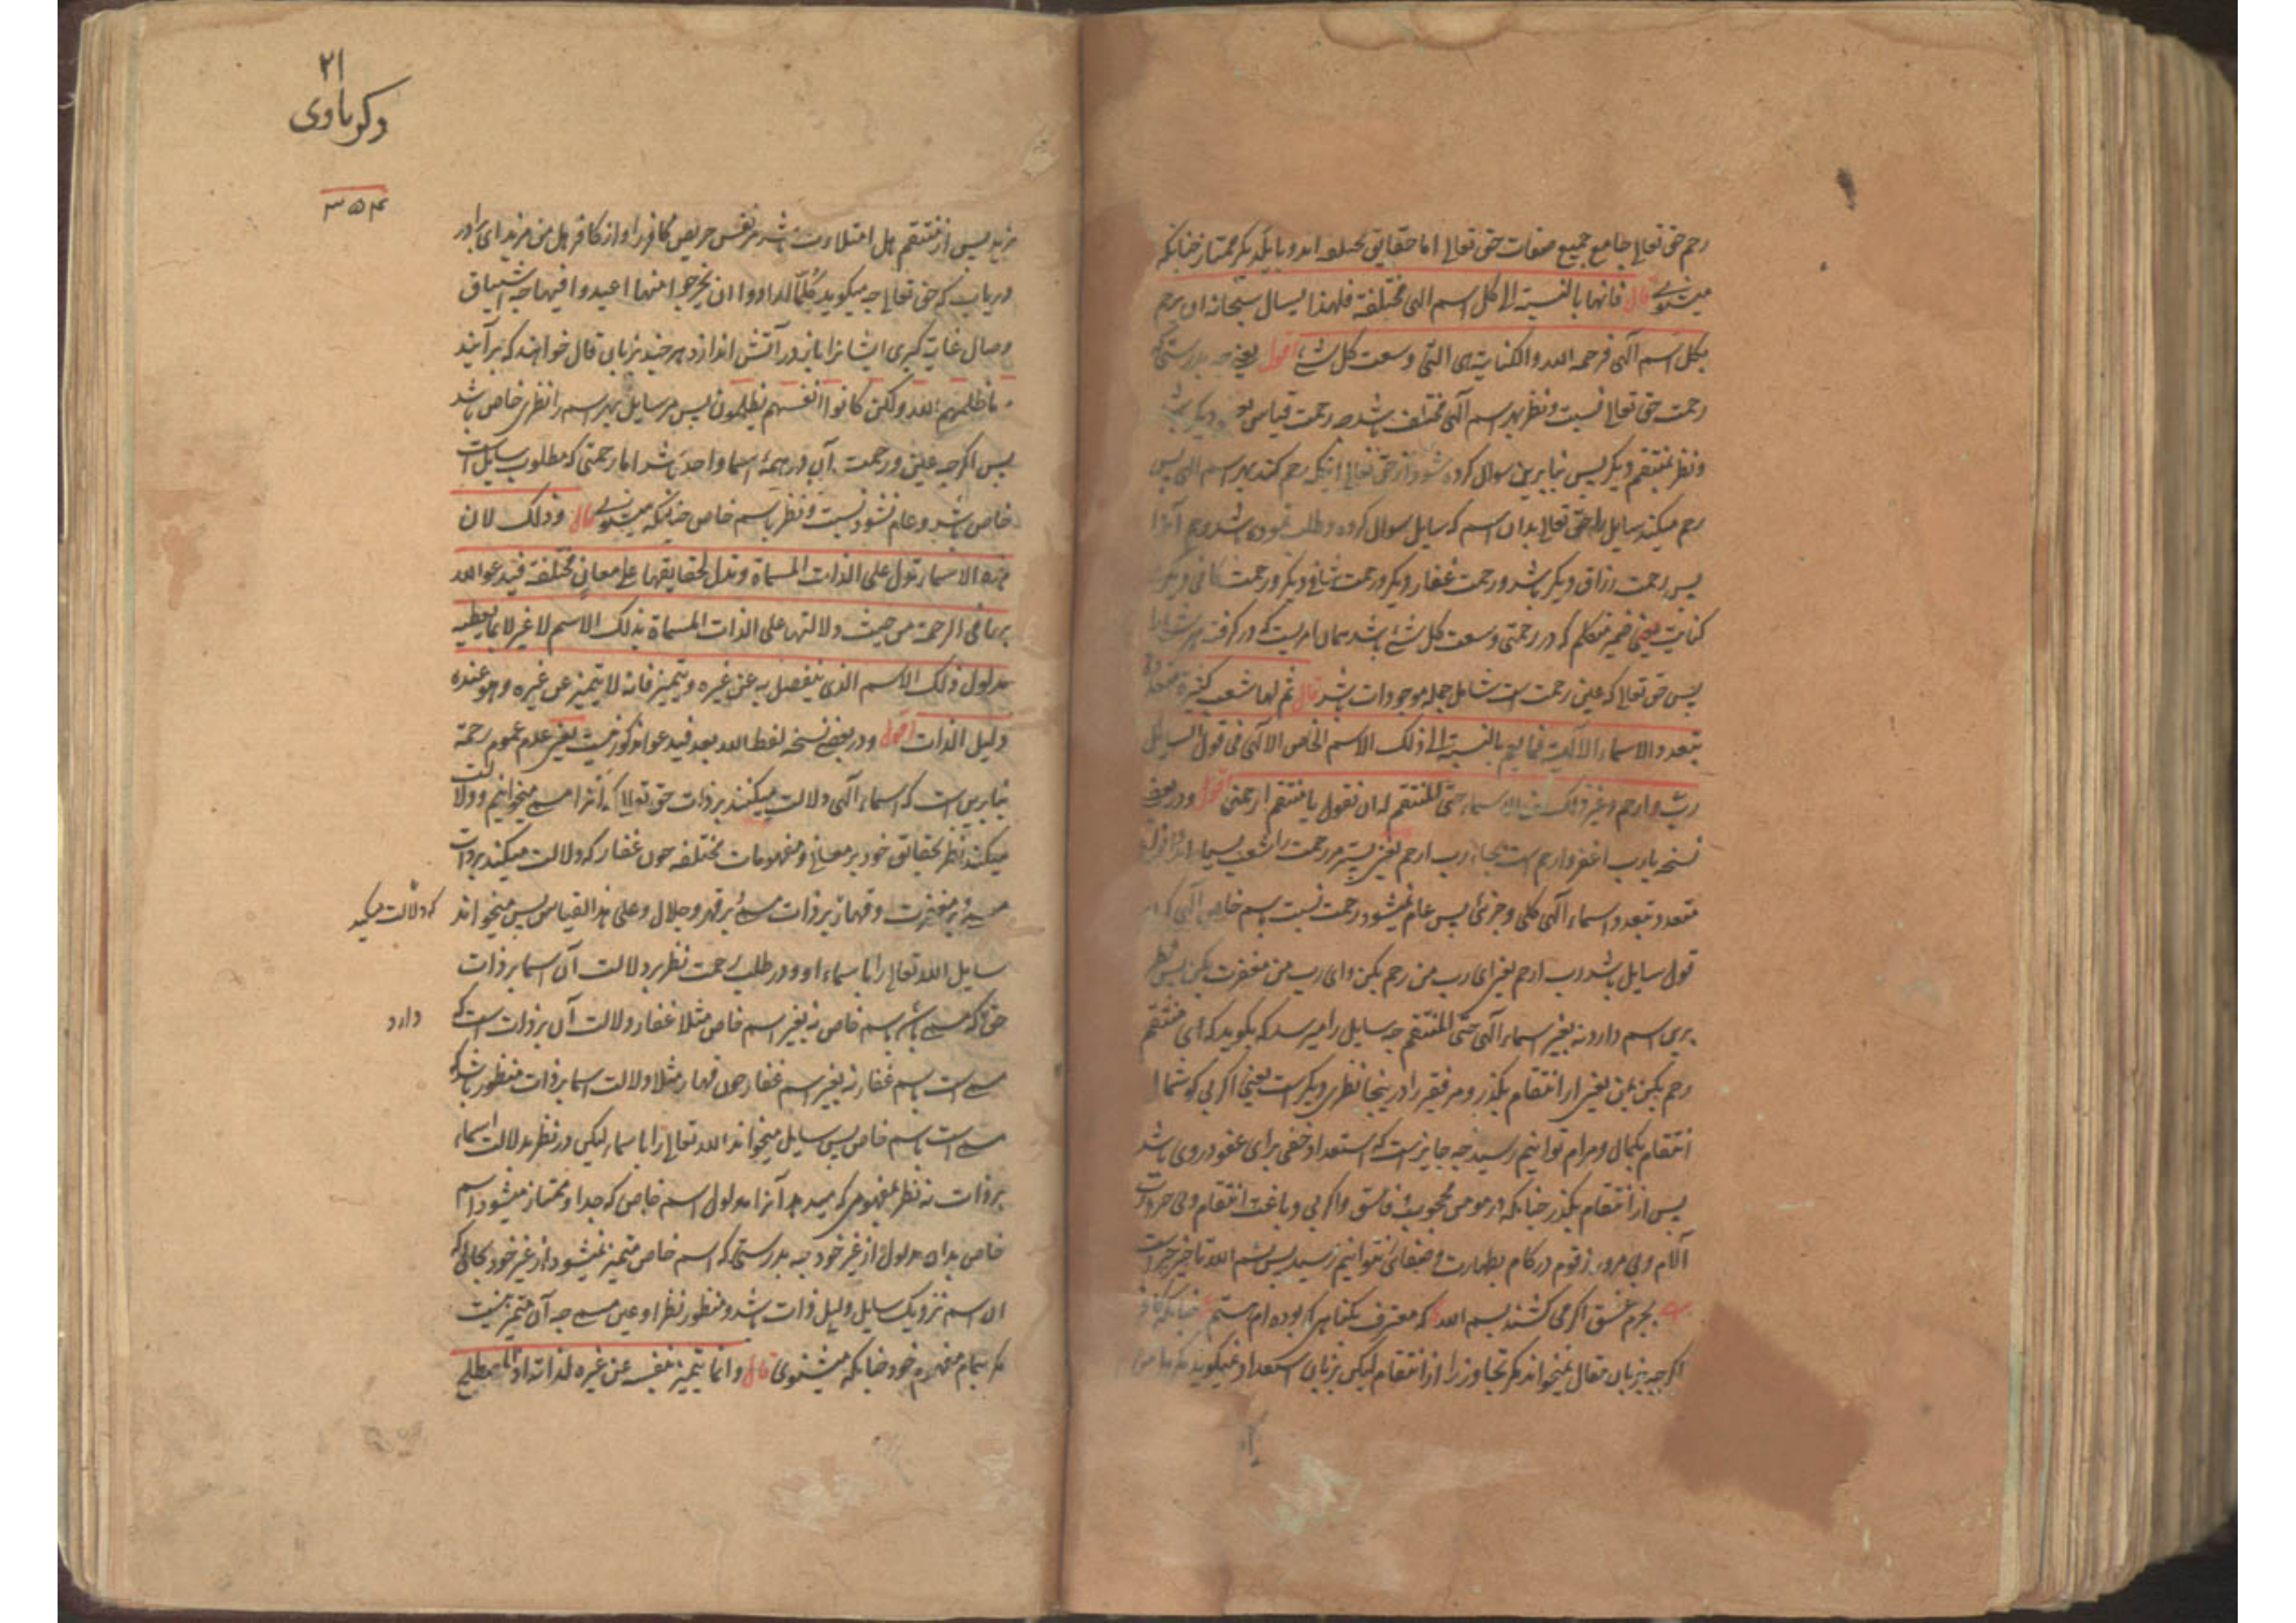 رحم حق تعالی جامع جمیع صفات حق تعالی اما حقایق مختلفه اند و با یکدیگر ممتاز چنانکه
میشنوی قال فانها بالنسبة الی کل اسم الهی مختلفة فلهذا یسال سبحانه ان یرحم
بکل اسم آلهی فرحمه الله والکنایة هی التی وسعت کل شئ اقول یعنی چه بدرستیکه
رحمت حق تعالی نسبت و نظر بهر اسم آلهی مختلف باشد چه رحمت قیاس
و نظر بمنتقم دیگر پس بنابرین سوال کرده شود از حق تعالی اینکه رحم کند بهر اسم الهی پس
رحم میکند سایل را حق تعالی بدان اسم که سایل سوال کرده و طلب نموده باشد
پس رحمت رزاق دیگر باشد و رحمت غفار دیگر و رحمت شافی دیگر و رحمت کافی دیگر
کنایت یعنی ضمیر متکلم که در رحمتی وسعت کل شئ باشد همان امریست که در گرفته
پس حق تعالی که عین رحمت است شامل جمله موجودات باشد قال ثم لها شعب کثیرة تتعدد
بتعدد الاسماء الالهیة فما تعم بالنسبة الی ذلک الاسم الخاص الالهی فی قول السایل
رب ارحم و غیر ذلک من الاسماء حتی المنتقم له ان یقول یا منتقم ارحمنی اقول و در بعض
نسخه یا رب اغفر وارحم است بجای رب ارحم یعنی پستر مر رحمت را شعب بسیار اند
متعدد بتعدد اسماء آلهی کلی و جزئی پس عام نمیشود رحمت نسبت باسم خاص آلهی که در
قول سایل باشد رب ارحم یعنی ای رب من رحم بکن و ای رب من مغفرت بکن پس نظر
برین اسم دارد نه بغیر اسماء آلهی حتی المنتقم چه سایل را میرسد که بگوید که ای منتقم
رحم بکن بمن یعنی از انتقام بگذر و مر فقیر را درینجا نظری دیگر است یعنی اگر بی گوشمال
انتقام بکمال و مرام توانیم رسید چه جایز است که استعداد خفی برای عفو در وی باشد
پس از انتقام بگذر چنانکه در مومن محجوب و فاسق و اگر بی دباغت انتقام و بی
آلام و بی مرور زقوم در کام بطهارت و صفائی نتوانیم رسید پس بسم الله تاخیر چراست
بجرم عشق اگر می کشند بسم الله که معترف بگناهی که بوده ام هستم چنانکه کافر
اگرچه بزبان مقال نمیخواند مگر تجاوز را از انتقام لیکن بزبان استعداد نمیگوید مگر
۲۱
وکرباوی
۳۵۴
مزید پس از منتقم هل امتلات باشد مر نفس حریص کافر را و از کافر هل من مزید ای برادر
دریاب که حق تعالی چه میگوید کلما ارادوا ان یخرجوا منها اعیدوا فیها چه اشتیاق
وصال غایت کبری ایشانرا باز در آتش اندازد هر چند بزبان قال خواهند که برآیند
ما ظلمهم الله ولکن کانوا انفسهم یظلمون پس مر سایل بهر اسم را نظری خاص باشد
پس اگرچه عین و رحمت آن در همه اسما واحد باشد اما رحمتی که مطلوب سایل است
خاص باشد و عام نشود نسبت و نظر باسم خاص چنانکه میشنوی قال وذلک لان
هذه الاسماء تدل علی الذات المسماة وتدل بحقایقها علی معان مختلفة فیدعو الله
بها فی الرحمة من حیث دلالتها علی الذات المسماة بذلک الاسم لا غیر لا بما یعطیه
مدلول ذلک الاسم الذی ینفصل به عن غیره ویتمیز فانه لا یتمیز عن غیره وهو عنده
دلیل الذات اقول و در بعضی نسخه لفظ الله بعد فیدعو مذکور نیست یعنی عدم عموم رحمة
بنابرین است که اسماء آلهی دلالت میکنند بر ذات حق تعالی که آنرا مسمی میخوانیم و دلالت
میکنند نظر بحقایق خود بر معانی و مفهومات مختلفه چون غفار که دلالت میکند بر ذات
مسمی و بر مغفرت و قهار بر ذات مسمی بر قهر و جلال و علی هذا القیاس پس میخواند
که دلالت میکند
سایل الله تعالی را با سماء او و در طلب رحمت نظر بر دلالت آن اسما بر ذات
حق که مسمی باشد باسم خاص نه بغیر اسم خاص مثلا غفار دلالت آن بر ذات است که
دارد
مسمی است باسم غفار نه بغیر اسم غفار چون قهار مثلا دلالت اسما بر ذات منظور باشد که
مسمی است باسم خاص پس سایل میخواند الله تعالی را با سماء لیکن در نظر دلالت اسماء
بر ذات نه نظر بمفهومی که میدهد آنرا مدلول اسم خاص که جدا و ممتاز میشود اسم
خاص بدان مدلول از غیر خود چه بدرستی که اسم خاص متمیز نمیشود از غیر خود بحالی که
آن اسم نزدیک سایل دلیل ذات باشد و منظور نظر او عین مسمی چه آن متمیز نیست
مگر بتمام مفهوم خود چنانکه میشنوی قال وانما یتمیز بنفسه عن غیره لذاته اذ المصطلح